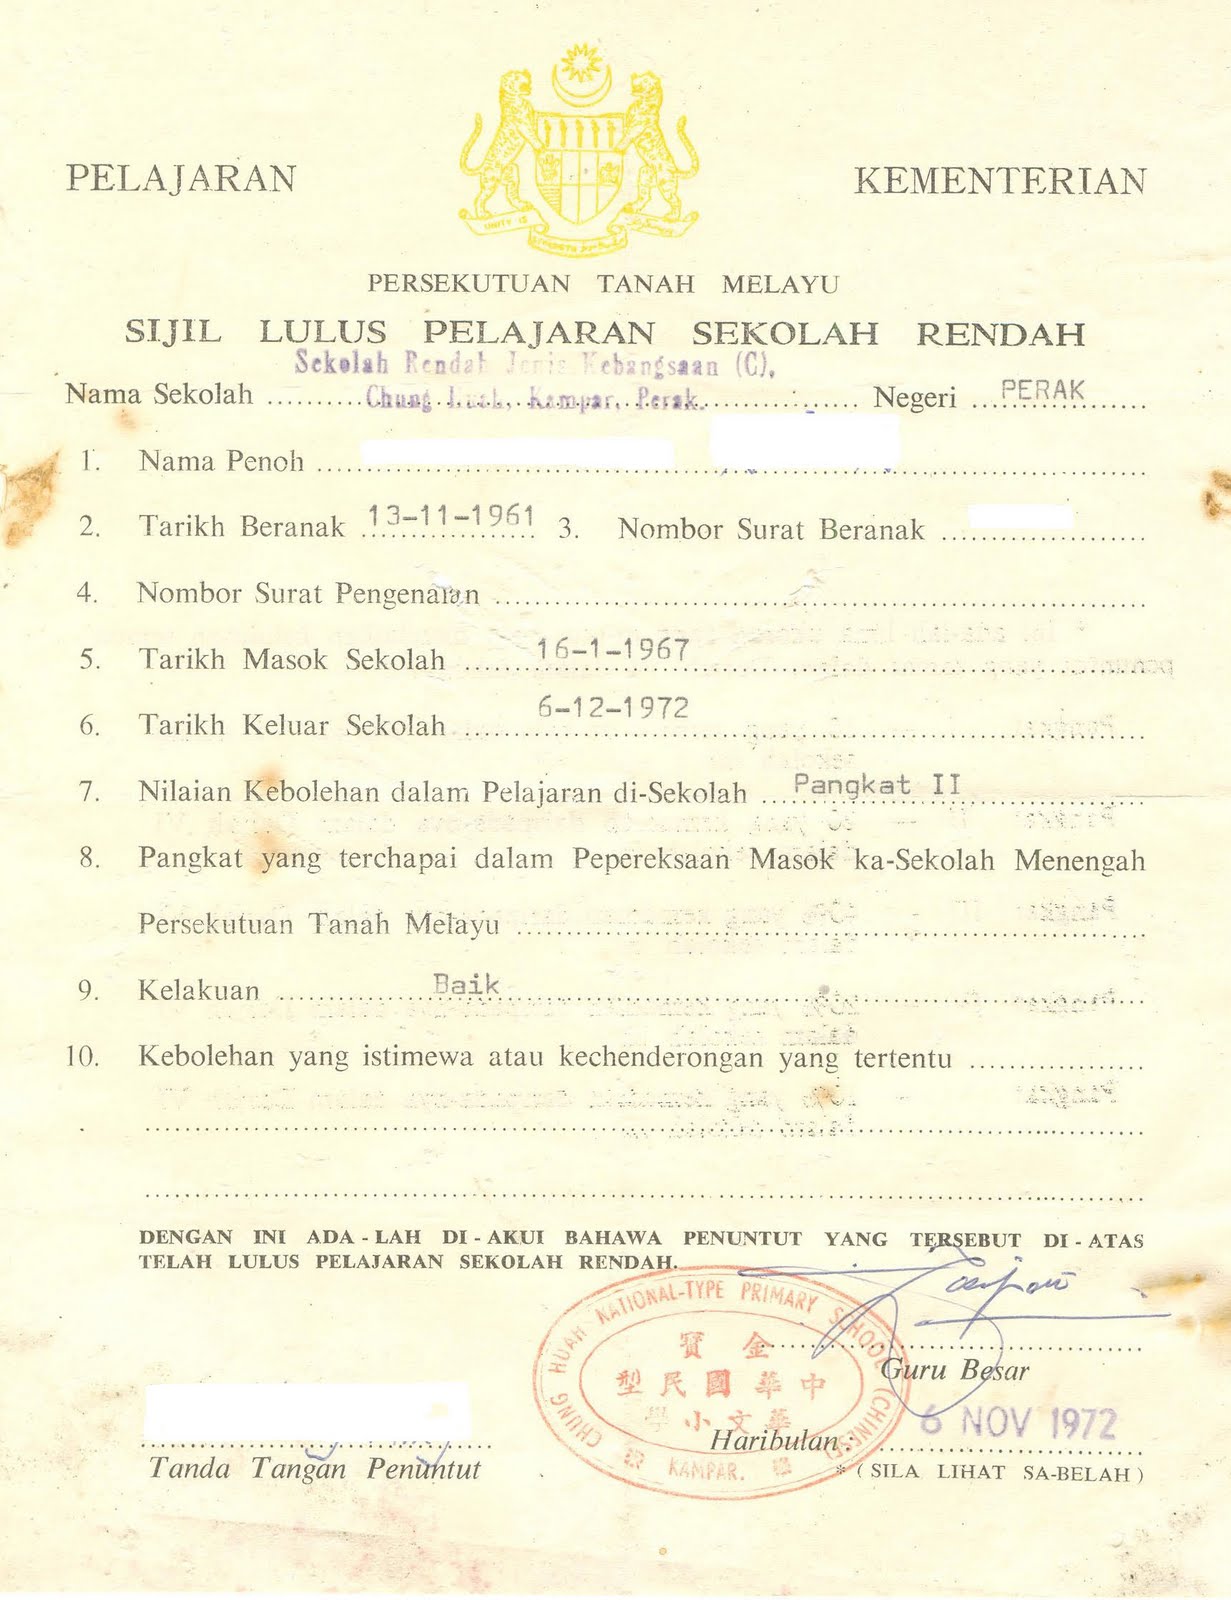 PELAJARAN KEMENTERIAN
UNITY IS
PERSEKUTUAN TANAH MELAYU
SIJIL LULUS PELAJARAN SEKOLAH RENDAH
Sekolah Rendah Jenis Kebangsaan (C),
Nama Sekolah Chung Huah, Kampar, Perak. Negeri PERAK
1. Nama Penoh
2. Tarikh Beranak 13-11-1961 3. Nombor Surat Beranak
4. Nombor Surat Pengenalan
5. Tarikh Masok Sekolah 16-1-1967
6. Tarikh Keluar Sekolah 6-12-1972
7. Nilaian Kebolehan dalam Pelajaran di-Sekolah Pangkat II
8. Pangkat yang terchapai dalam Pepereksaan Masok ka-Sekolah Menengah
Persekutuan Tanah Melayu
9. Kelakuan Baik
10. Kebolehan yang istimewa atau kechenderongan yang tertentu
DENGAN INI ADA-LAH DI-AKUI BAHAWA PENUNTUT YANG TERSEBUT DI-ATAS
TELAH LULUS PELAJARAN SEKOLAH RENDAH.
CHUNG HUAH NATIONAL-TYPE PRIMARY SCHOOL (CHINESE)
寶金
型民國華中
學小文華
KAMPAR.
Guru Besar
6 NOV 1972
Haribulan:
Tanda Tangan Penuntut
* (SILA LIHAT SA-BELAH)